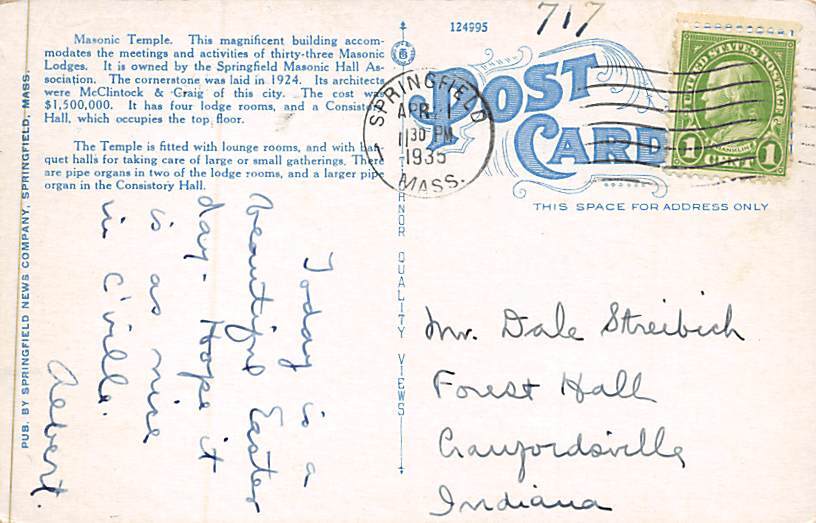 717
124995
Masonic Temple. This magnificent building accom-
modates the meetings and activities of thirty-three Masonic
Lodges. It is owned by the Springfield Masonic Hall As-
sociation. The cornerstone was laid in 1924. Its architects
were McClintock & Craig of this city. The cost was
$1,500,000. It has four lodge rooms, and a Consistory
Hall, which occupies the top floor.
The Temple is fitted with lounge rooms, and with ban-
quet halls for taking care of large or small gatherings. There
are pipe organs in two of the lodge rooms, and a larger pipe
organ in the Consistory Hall.
PUB. BY SPRINGFIELD NEWS COMPANY, SPRINGFIELD, MASS.
Today is a
beautiful Easter
day. Hope it
is as nice
in C'ville.
Albert.
QUALITY VIEWS
SPRINGFIELD
APR 1
1130 PM
1935
MASS.
POST
CARD
UNITED STATES POSTAGE
FRANKLIN
1 CENT 1
THIS SPACE FOR ADDRESS ONLY
Mr. Dale Streibich
Forest Hall
Crawfordsville
Indiana